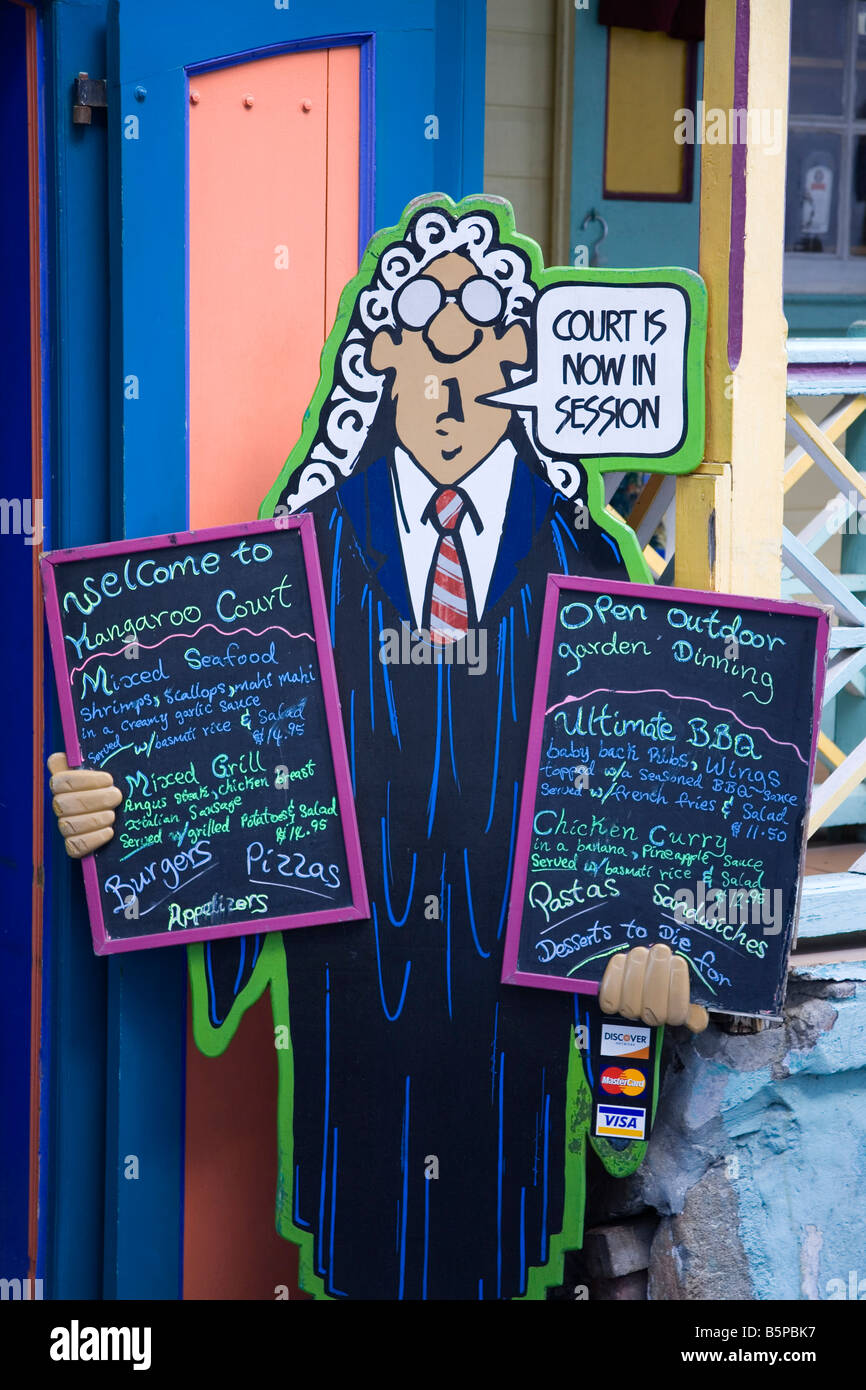 COURT IS
NOW IN
SESSION
Welcome to
Kangaroo Court
Mixed Seafood
Shrimps, Scallops, mahi mahi
in a creamy garlic sauce
Served w/basmati rice & Salad
$14.95
Mixed Grill
Angus steak, chicken breast
Italian Sausage
Served w/grilled Potatoes & Salad
$14.95
Burgers Pizzas
Appetizors
Open Outdoor
garden Dinning
Ultimate BBQ
baby back Ribs, Wings
topped w/a seasoned BBQ sauce
Served w/french fries & Salad
$11.50
Chicken Curry
in a banana, Pineapple Sauce
Served w/basmati rice & Salad
$12.95
Pastas Sandwiches
Desserts to Die for
DISCOVER
NETWORK
MasterCard
VISA
alamy
Image ID: B5PBK7
www.alamy.com